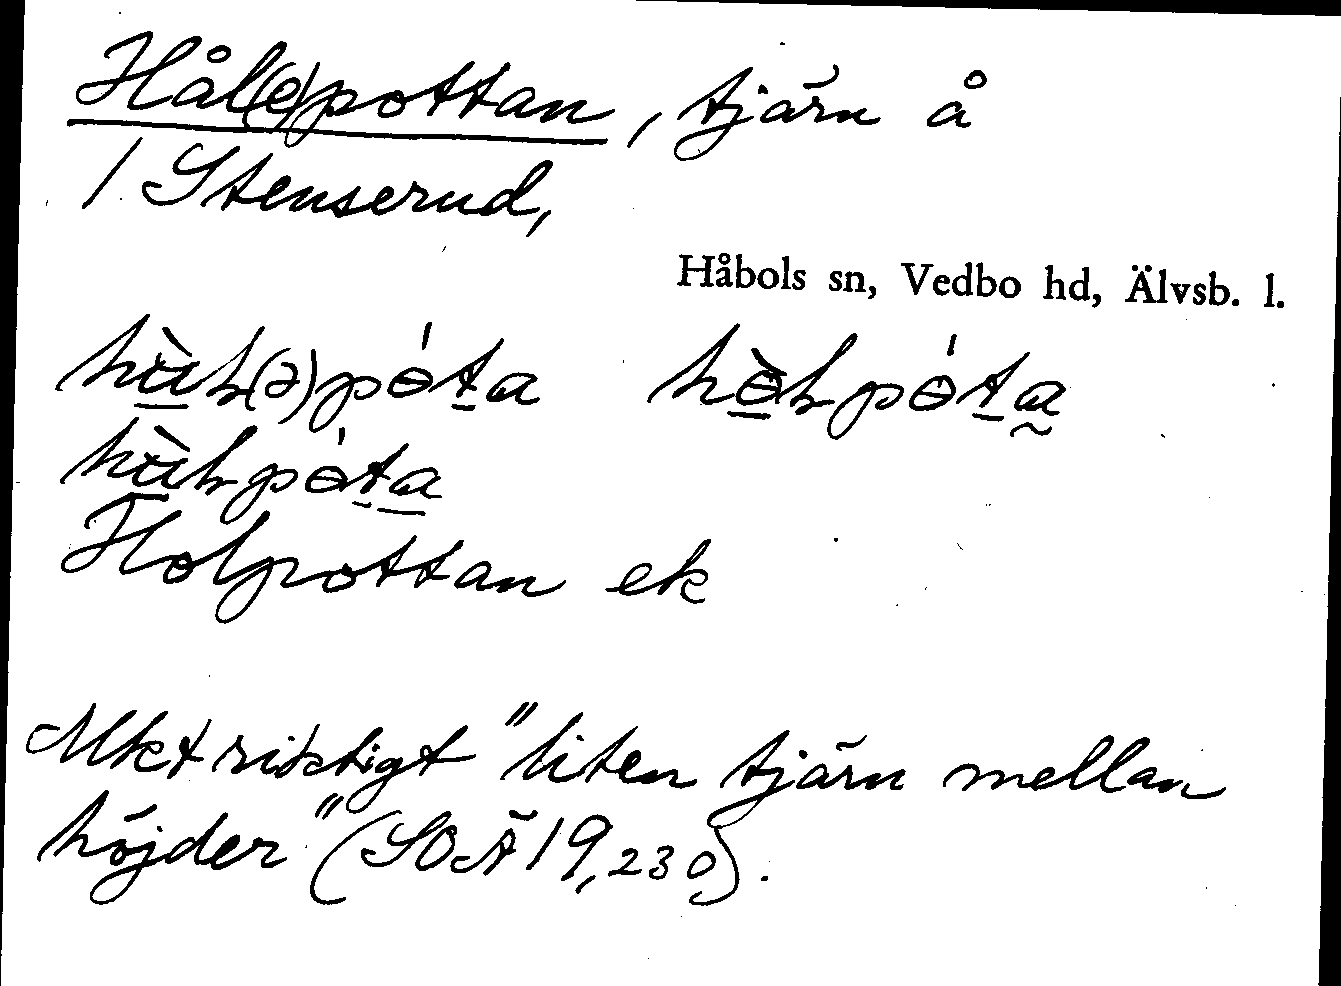 Hål(e)pottan, tjärn å
1 Stenserud,
Håbols sn, Vedbo hd, Älvsb. l.
Holpottan ek
Mkt riktigt "liten tjärn mellan
höjder" (SOÄ 19,230).